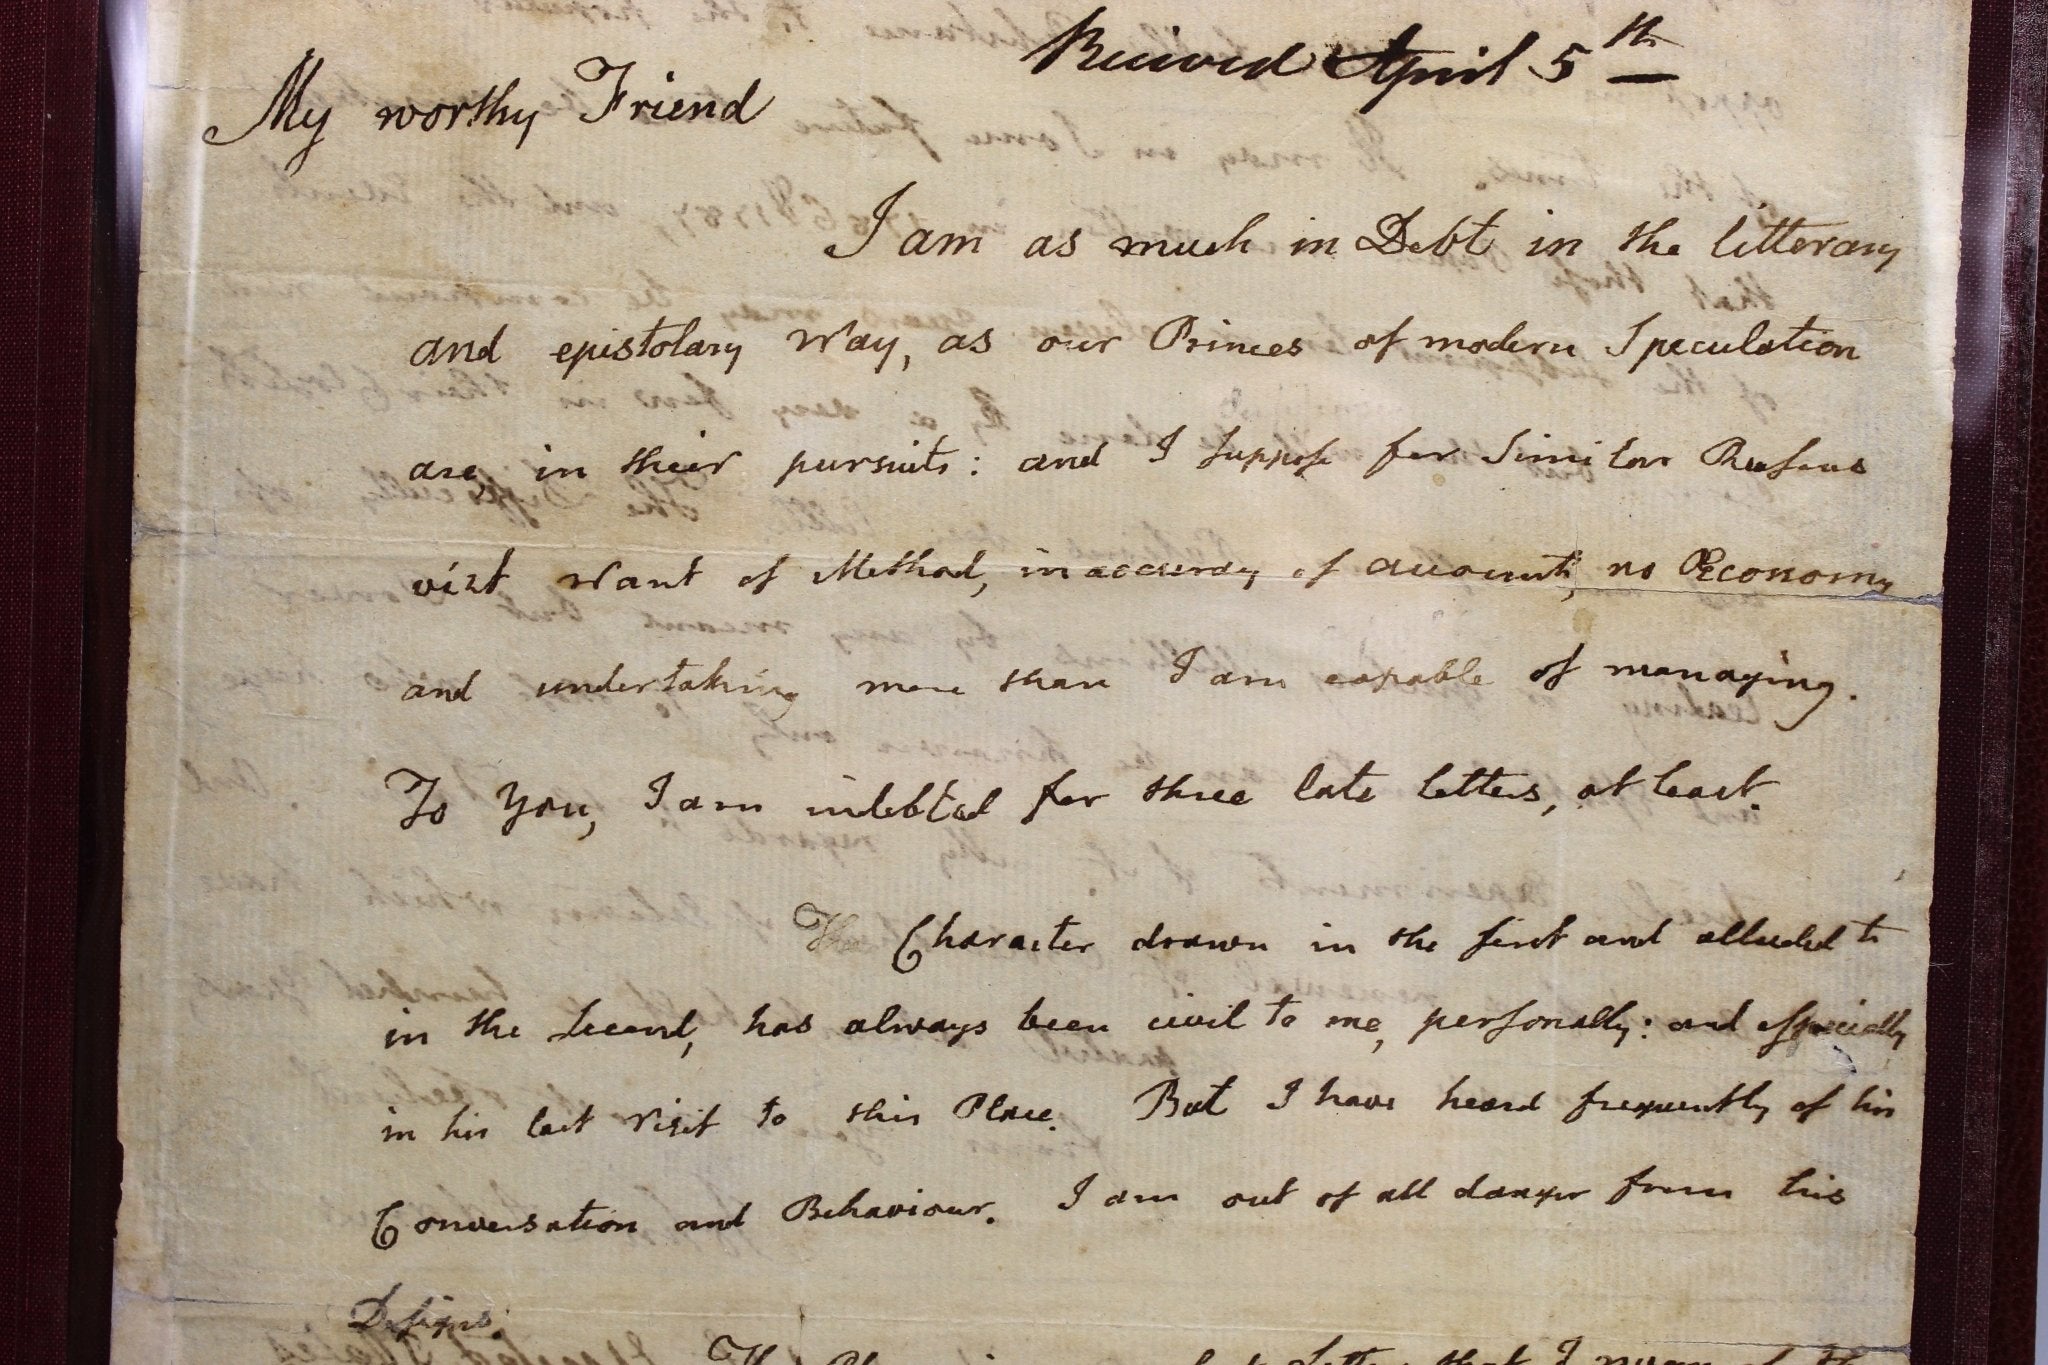 Received April 5th
My worthy Friend
I am as much in Debt in the litterary
and epistolary Way, as our Princes of modern Speculation
are, in their pursuits: and I suppose for Similar Reasons
vizt Want of Method, inaccuracy of accounts, no Œconomy
and undertaking more than I am capable of managing.
To You, I am indebted for three late letters, at least.
The Character drawn in the first and alluded to
in the second, has always been civil to me, personally: and especially
in his last visit to this Place. But I have heard frequently of his
Conversation and Behaviour. I am out of all danger from his
Designs.
Letter that I